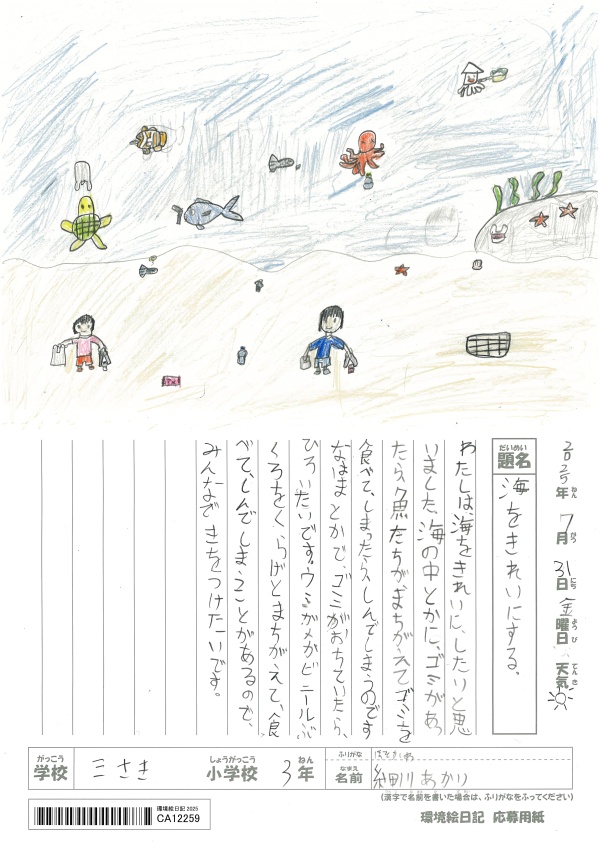 2025年ねん 7月がつ 31日にち 金曜日ようび 天気てんき
題名だいめい 海をきれいにする。
わたしは、海をきれいに、したりと思
いました。海の中とかに、ゴミがあっ
たら、魚たちが、まちがえてゴミを
食べて、しまったら、しんでしまうのです
なはまとかで、ゴミがおちていたら、
ひろいたいです。ウミガメがビニールぶ
くろをくらげとまちがえて、食
べて、しんでしまうことがあるので、
みんなできをつけたいです。
がっこう 学校 三さき しょうがっこう 小学校 3年ねん ふりがな なまえ 名前 細川あかり
(漢字で名前を書いた場合は、ふりがなをふってください)
環境絵日記 2025
CA12259
環境絵日記 応募用紙